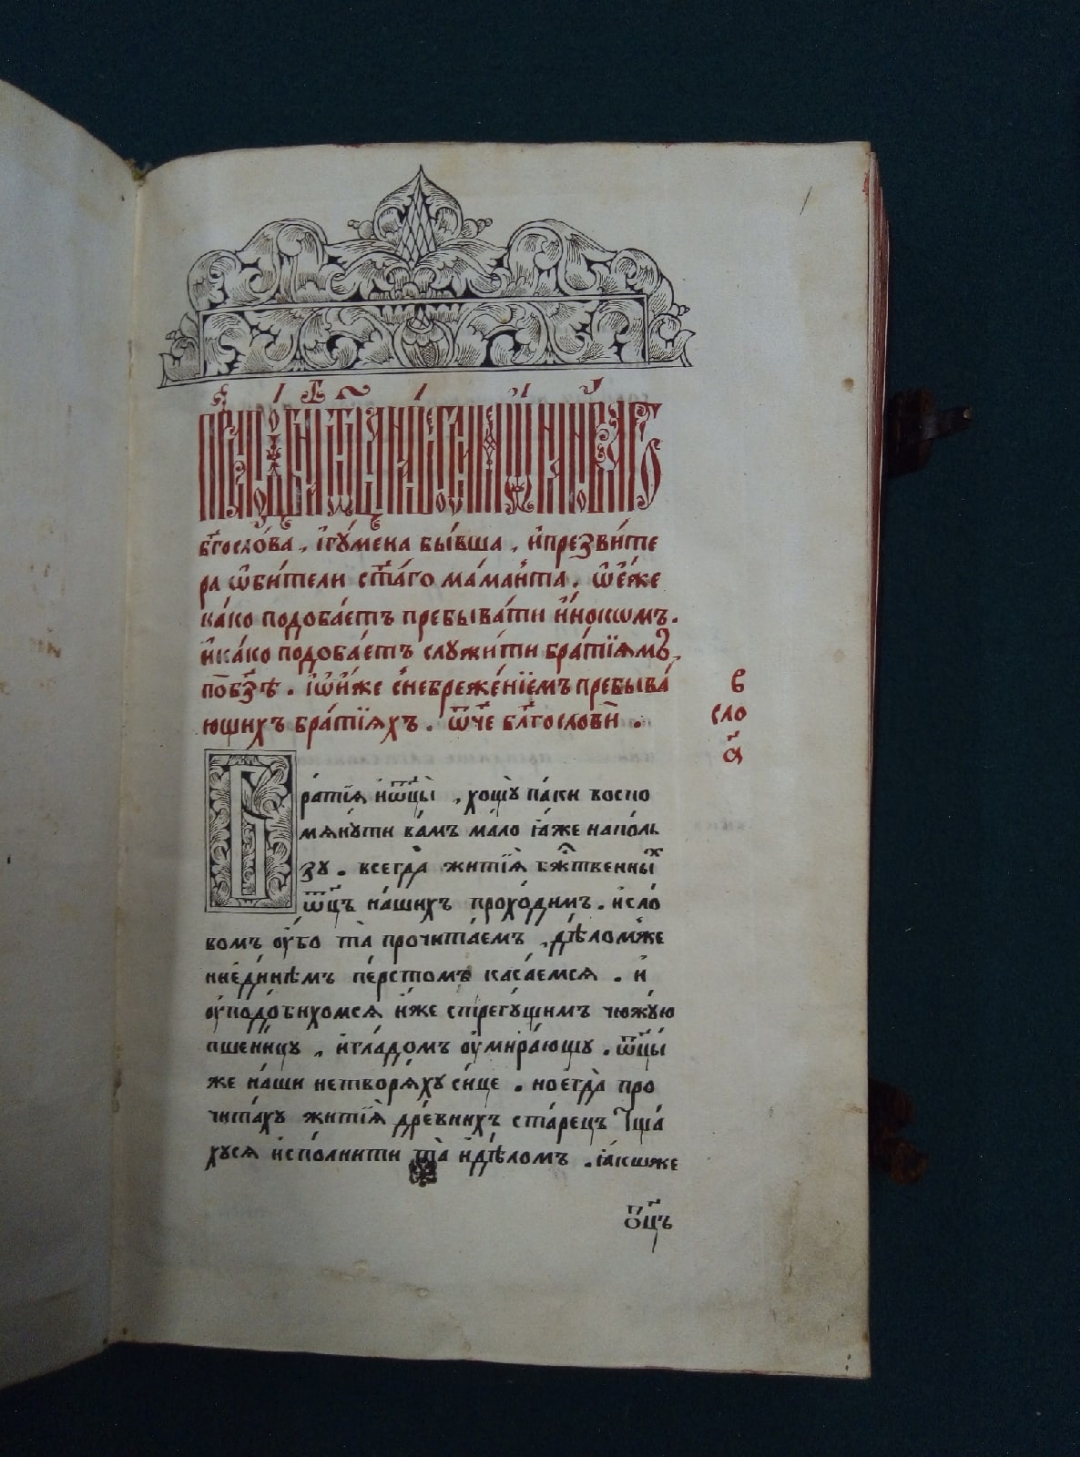 бг҃осло́ва, і҆гу́мена бы́вша, и҆презви́те
ра ѡ҆би́тели ст҃а́го мама́нта. ѡ҆е́же
ка́ко подоба́етъ пребыва́ти и҆́нокѡмъ.
и҆ка́ко подоба́етъ служи́ти бра́тїямъ,
по бз҃ѣ. і҆ѡ҆и҆́же снебреже́нїемъ пребыва́
ющихъ бра́тїяхъ. ѿч҃е бл҃гослови̏.
в
сло
а҃
Бра́тїя и҆ѿц҃ы̀, хощу̀ па́ки воспо
мяну́ти ва́мъ ма́ло ꙗ҆́же напо́ль
зу. всегда̀ житїя̀ бж҃твенны
ѿц҃ъ на́шихъ прохо́димъ. и҆сло́
вомъ ᲂу҆́бо та̀ прочита́емъ, дѣ́ломже
ниеди́нѣмъ пе́рстомъ каса́емся. и҆
ᲂу҆подо́бихомся и҆́же стрегу́щимъ чюжу́ю
пшени́цу, и҆гла́домъ ᲂу҆мира́ющу. ѿц҃ы
же на́ши нетворя́ху си́це. ноегда̀ про
чита́ху житїя̀ дре́внихъ ста́рецъ тща́
хуся и҆спо́лнити та̀ и҆дѣ́ломъ. ꙗ҆́кѡже
ѻ҆ц҃ъ